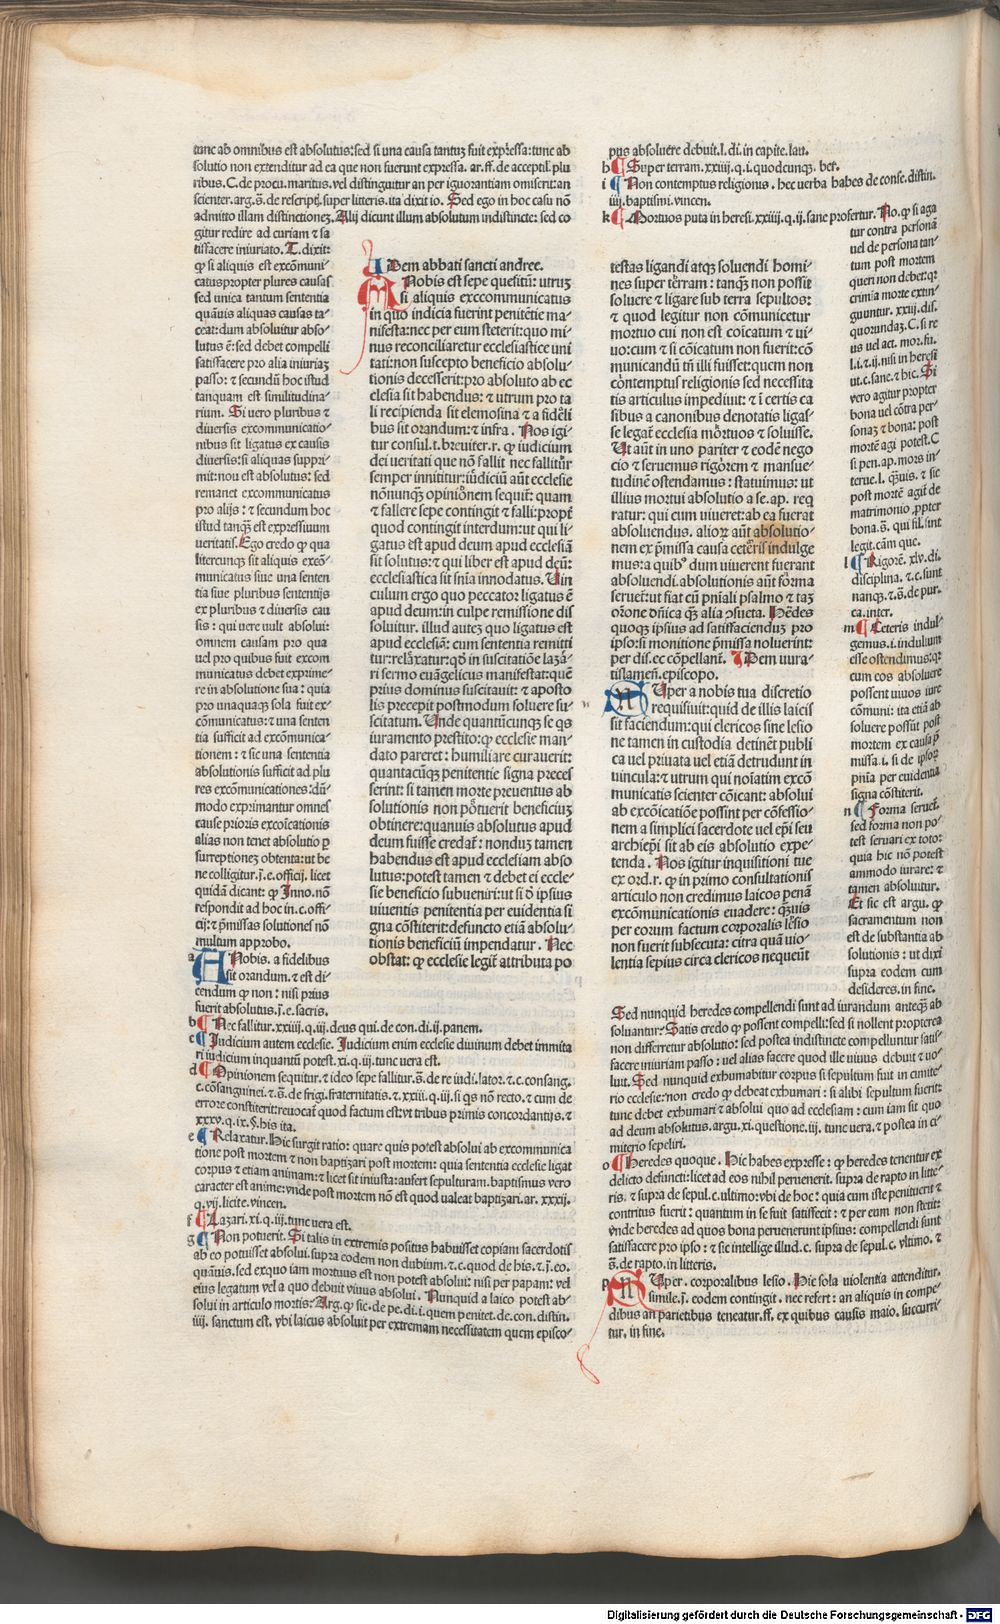 tunc ab omnibus est absolutus: sed si una causa tantuȝ fuit expressa: tunc ab
solutio non extenditur ad ea que non fuerunt expressa. ar. ff. de acceptil. plu
ribus. C. de procu. maritus. vel distinguitur an per ignorantiam omiserit: an
scienter. arg. s. de rescript. super litteris. ita dixit io. Sed ego in hoc casu nō
admitto illam distinctioneȝ. Alij dicunt illum absolutum indistincte: sed co
gitur redire ad curiam ⁊ sa
tissacere iniuriato. T. dixit:
ꝙ si aliquis est excōmuni
catus propter plures causas
sed unica tantum sententia
quāuis aliquas causas ta
ceat: dum absoluitur abso
lutus ē: sed debet compelli
satisfacere pro alia iniuriaȝ
passo: ⁊ secundū hoc istud
tanquam est similitudina
rium. Si uero pluribus ⁊
diuersis excommunicatio
nibus sit ligatus ex causis
diuersis: si aliquas suppri
mit: non est absolutus: sed
remanet excommunicatus
pro alijs: ⁊ secundum hoc
istud tanqȝ est expressiuum
veritatis. Ego credo ꝙ qua
litercunqȝ sit aliquis excō
municatus siue una senten
tia siue pluribus sententijs
ex pluribus ⁊ diuersis cau
sis: qui uere vult absolui:
omnem causam pro qua
uel pro quibus fuit excom
municatus debet exprime
re in absolutione sua: quia
pro unaquaqȝ sola fuit ex
cōmunicatus: ⁊ una senten
tia sufficit ad excōmunica
tionem: ⁊ sic una sententia
absolutionis sufficit ad plu
res excōmunicationes: dū
modo exprimantur omnes
cause prioris excoīcationis
alias non tenet absolutio ꝑ
surreptioneȝ obtenta: ut be
ne colligitur. j. e. officij. licet
quidā dicant: ꝙ Inno. nō
respondit ad hoc in. c. offi
cij: ⁊ p̄missas solutiones nō
multum approbo.
a A Nobis. a fidelibus
sit orandum. ⁊ est di
cendum ꝙ non: nisi prius
fuerit absolutus. j. e. sacris.
b Nec fallitur. xxiiij. q. iij. deus qui. de con. di. ij. panem.
c Iudicium autem ecclesie. Iudicium enim ecclesie diuinum debet immita
ri iudicium inquantū potest. xi. q. iij. tunc uera est.
d Opinionem sequitur. ⁊ ideo sepe fallitur. s. de re iudi. lator. ⁊. c. consang.
c. cōsanguinei. ⁊. s. de frigi. fraternitatis. ⁊. xxiij. q. iij. si qs nō recto. ⁊ cum de
errore constiterit: reuocat̄ quod factum est: vt tribus primis concordantijs. ⁊
xxxv. q. ix. §. his ita.
e Relaxatur. Hic surgit ratio: quare quis potest absolui ab excommunica
tione post mortem ⁊ non baptizari post mortem: quia sententia ecclesie ligat
corpus ⁊ etiam animam: ⁊ licet sit iniusta: aufert sepulturam. baptismus vero
caracter est anime: vnde post mortem nō est quod ualeat baptizari. ar. xxxij.
q. vij. licite. vincen.
f Lazari. xi. q. iij. tunc uera est.
g Non potuerit. Si talis in extremis positus habuisset copiam sacerdotis
ab eo potuisset absolui. supra eodem non dubium. ⁊. c. quod de his. ⁊. j. eo.
quāuis. sed exquo iam mortuus est non potest absolui: nisi per papam: vel
eius legatum vel a quo debuit viuus absolui. Nunquid a laico potest ab
solui in articulo mortis: Arg. ꝙ sic. de pe. di. i. quem penitet. de con. distin.
iiij. sanctum est. vbi laicus absoluit per extremam necessitatem quem episco
Idem abbati sancti andree.
A Nobis est sepe quesitū: utruȝ
si aliquis exccommunicatus
in quo indicia fuerint penitētie ma
nifesta: nec per eum steterit: quo mi
nus reconciliaretur ecclesiastice uni
tati: non suscepto beneficio absolu
tionis decesserit: pro absoluto ab ec
clesia sit habendus: ⁊ utrum pro ta
li recipienda sit elemosina ⁊ a fideli
bus sit orandum: ⁊ infra. Nos igi
tur consul. t. breuiter. r. ꝙ iudicium
dei ueritati que nō fallit nec fallitur
semper innititur: iudiciū aūt ecclesie
nōnunqȝ opinionem sequit̄: quam
⁊ fallere sepe contingit ⁊ falli: propt̄
quod contingit interdum: ut qui li
gatus est apud deum apud ecclesiā
sit solutus: ⁊ qui liber est apud deū:
ecclesiastica sit sn̄ia innodatus. Uin
culum ergo quo peccator ligatus ē
apud deum: in culpe remissione dis
soluitur. illud auteȝ quo ligatus est
apud ecclesiā: cum sententia remitti
tur: relaxatur: qd in suscitatiōe lazā
ri sermo euāgelicus manifestat: quē
prius dominus suscitauit: ⁊ aposto
lis precepit postmodum soluere su
scitatum. Unde quantūcunqȝ se qs
iuramento prestito: ꝙ ecclesie man
dato pareret: humiliare curauerit:
quantacūqȝ penitentie signa preces
serint: si tamen morte preuentus ab
solutionis non potuerit beneficiuȝ
obtinere: quanuis absolutus apud
deum fuisse credat̄: nonduȝ tamen
habendus est apud ecclesiam abso
lutus: potest tamen ⁊ debet ei eccle
sie beneficio subueniri: ut si ō ipsius
viuentis penitentia per euidentia si
gna cōstiterit: defuncto etiā absolu
tionis beneficiū impendatur. Nec
obstat: ꝙ ecclesie legit̄ attributa po
pus absoluere debuit. l. di. in capite. lau.
h Super terram. xxiiij. q. i. quodcunqȝ. ber.
i Non contemptus religionis. hec uerba habes de conse. distin.
iiij. baptismi. vincen.
k Mortuos puta in heresi. xxiiij. q. ij. sane profertur. No. ꝙ si aga
tur contra personā
uel de persona tan
tum post mortem
queri non debet: qr
crimia morte extin
guuntur. xxiij. dis.
quorundaȝ. C. si re
us uel act. mor. fu.
l. i. ⁊. ij. nisi in heresi
ut. c. sane. ⁊ hic. Si
vero agitur propter
bona uel cōtra per
sonaȝ ⁊ bona: post
mortē agi potest. C
si pen. ap. mors in
terue. l. quis. ⁊ sic
post mortē agit̄ de
matrimonio ꝓpter
bona. s. qui fil. sint
legit. cām que.
l Rigorē. xlv. di.
disciplina. ⁊. c. sunt
nanqȝ. ⁊. s. de pur.
ca. inter.
m Ceteris indul
gemus. i. indultum
esse ostendimus: qr
cum eos absoluere
possent uiuos iure
cōmuni: ita etiā ab
soluere possūt post
mortem ex causa p̄
missa. i. si de ipsoꝝ
pnīa per euidentia
signa cōstiterit.
n Forma seruet̄.
sed forma non po
test seruari ex toto:
quia hic nō potest
ammodo iurare: ⁊
tamen absoluitur.
Et sic est argu. ꝙ
sacramentum non
est de substantia ab
solutionis: ut dixi
supra eodem cum
desideres. in fine.
testas ligandi atqȝ soluendi homi
nes super terram: tanqȝ non possit
soluere ⁊ ligare sub terra sepultos:
⁊ quod legitur non cōmunicetur
mortuo cui non est coīcatum ⁊ ui
uo: cum ⁊ si cōicatum non fuerit: cō
municandū tn̄ illi fuisset: quem non
cōtemptus religionis sed necessita
tis articulus impediuit: ⁊ ī certis ca
sibus a canonibus denotatis ligas
se legat̄ ecclesia mortuos ⁊ soluisse.
Ut aūt in uno pariter ⁊ eodē nego
cio ⁊ seruemus rigorem ⁊ mansue
tudinē ostendamus: statuimus: ut
illius mortui absolutio a se. ap. req
ratur: qui cum uiueret: ab ea fuerat
absoluendus. alioꝝ aūt absolutio
nem ex p̄missa causa ceteris indulge
mus: a quib⁹ dum uiuerent fuerant
absoluendi. absolutionis aūt forma
seruet̄: ut fiat cū pniali psalmo ⁊ taȝ
oꝛone dn̄ica qȝ alia ɔsueta. Herēdes
quoqȝ ipsius ad satisfaciendū pro
ipso: si monitione p̄missa noluerint:
per dis. ec cōpellant̄. Idem uura
tislauen. episcopo.
N Uper a nobis tua discretio
requisiuit: quid de illis laicis
sit faciendum: qui clericos sine lesio
ne tamen in custodia detinēt publi
ca uel priuata uel etiā detrudunt in
vincula: ⁊ utrum qui noīatim excō
municatis scienter cōicant: absolui
ab excōicatiōe possint per cōfessio
nem a simplici sacerdote uel ep̄i seu
archiep̄i sit ab eis absolutio expe
tenda. Nos igitur inquisitioni tue
ex ord. r. ꝙ in primo consultationis
articulo non credimus laicos penā
excōmunicationis euadere: qȝuis
per eorum factum corporalis lesio
non fuerit subsecuta: citra quā uio
lentia sepius circa clericos nequeūt
Sed nunquid heredes compellendi sunt ad iurandum anteqȝ ab
soluantur: Satis credo ꝙ possent compelli: sed si nollent propterea
non differretur absolutio: sed postea indistincte compelluntur satis
facere iniuriam passo: uel alias facere quod ille viuus debuit ⁊ vo
luit. Sed nunquid exhumabitur corpus si sepultum fuit in cimite
rio ecclesie: non credo ꝙ debeat exhumari: si alibi sepultum fuerit:
tunc debet exhumari ⁊ absolui quo ad ecclesiam: cum iam sit quo
ad deum absolutus. argu. xi. questione. iij. tunc vera. ⁊ postea in ci
miterio sepeliri.
o Heredes quoque. Hic habes expresse: ꝙ heredes tenentur ex
delicto defuncti: licet ad eos nihil peruenerit. supra de rapto in litte
ris. ⁊ supra de sepul. c. ultimo: vbi de hoc: quia cum iste penituerit ⁊
contritus fuerit: quantum in se fuit satisfecit: ⁊ per eum non stetit:
vnde heredes ad quos bona peruenerunt ipsius: compellendi sunt
satisfacere pro ipso: ⁊ sic intellige illud. c. supra de sepul. c. vltimo. ⁊
s. de rapto. in litteris.
p N Uper. corporalibus lesio. Hic sola violentia attenditur.
simile. j. eodem contingit. nec refert: an aliquis in compe
dibus an parietibus teneatur. ff. ex quibus causis maio. succurri
tur. in fine.
Digitalisierung gefördert durch die Deutsche Forschungsgemeinschaft - DFG